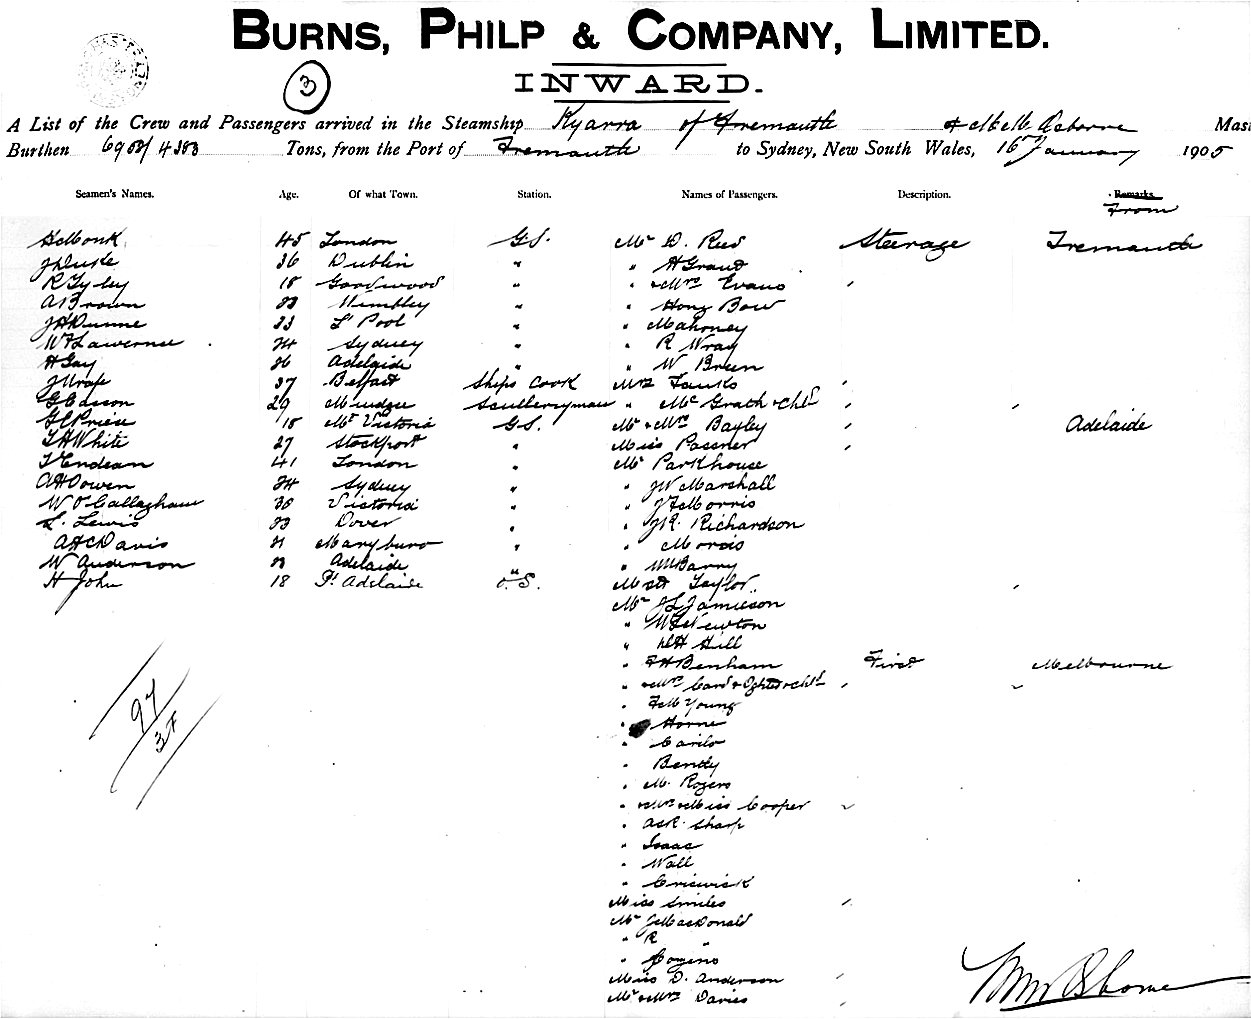 BURNS, PHILP & COMPANY, LIMITED.
INWARD.
3
A List of the Crew and Passengers arrived in the Steamship Kyarra of Fremantle Osborne Mas
Burthen Tons, from the Port of Fremantle to Sydney, New South Wales, 16th January 1905
Seamen's Names. Age. Of what Town. Station. Names of Passengers. Description. Remarks
From
H Monk 45 London G.S. Mr D. Rees Steerage Fremantle
J Duke 36 Dublin " " H Grand
R Tyley 18 Goodwood " " & Mrs Evans
A Brown 33 Wembley " " Hong Bow
J H Dunne 33 L'Pool " " Mahoney
W F Lawernce 24 Sydney " " R Wray
H Gay 26 Adelaide " " W Breen
J Wrafe 37 Belfast Ships Cook Mrs Fauks
G Casson 29 Mudgee Sculleryman " McGrath & Chld
G C Priest 18 Mt Victoria G.S. Mr & Mrs Bayley Adelaide
T H White 27 Stockport " Miss Passner
T Endean 41 London " Mr Parkhouse
A H Owen 24 Sydney " " J W Marshall
W O'Callaghan 38 Victoria " " J F Morris
S. Lewis 33 Dover " " J R. Richardson
A H C Davis 21 Maryboro " " Morris
W Anderson 23 Adelaide " " W Barry
H John 18 Pt Adelaide O.S. Taylor
Mr J L Jamieson
" W F Newton
" Hill
" F H Benham First Melbourne
" & Mrs Card & Dghtr & Chld
" F M Young
" Horne
" Carilo
" Bently
" M. Rogers
" & Mrs & Miss Cooper
" Sharp
" Isaac
" Wall
" Criswick
Miss Smiles
Mr J MacDonald
" R "
" Comino
Miss D. Anderson
Mr & Mrs Davies
97
37